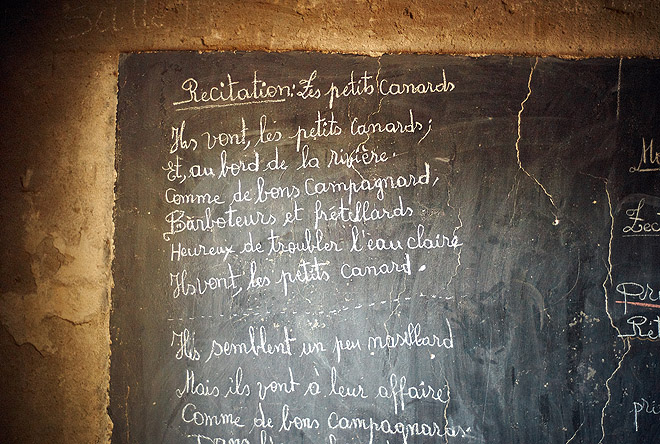 Recitation: Les petits canards
Ils vont, les petits canards,
Et, au bord de la rivière.
Comme de bons campagnard,
Barboteurs et frétillards
Heureux de troubler l'eau claire
Ils vont, les petits canard.
Ils semblent un peu nasillard
Mais ils vont à leur affaire
Comme de bons campagnards.